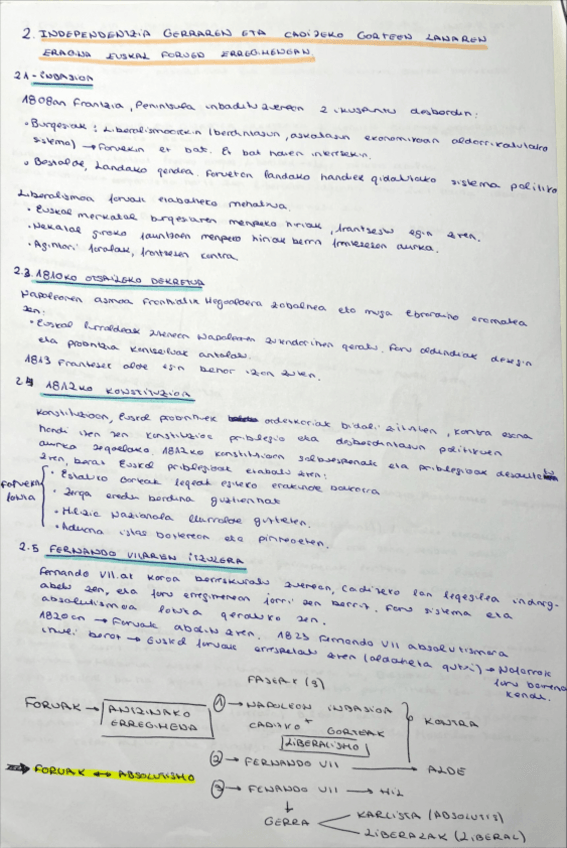 2. INDEPENDENTZIA GERRAREN ETA CADIZEKO GORTEEN LANAREN
ERAGINA EUSKAL FORUEO ERREGIMENGAN.
2.1 - INBASIOA
1808an Frantzia, Penintsula inbaditu zuenean 2 ikuspuntu desberdin:
• Burgesiak: Liberalismoarekin (berdintasun, askatasun ekonomikoan aldarrikatutako
sistema) → Foruekin et bat. Ez bat haien interesekin.
• Bestalde, Landako gendea. Foruetan landako handiek gidatutako sistema politiko
Liberalismoa foruak erabateko mehatxua.
• Euskal merkatal burgesiaren menpeko hiriak, frantsestu egin ziren.
• Nekazal giroko jauntxoen menpeko hiriak berriz frantsesen aurka.
• Agintari foralak, frantsesen contra.
2.3. 1810KO OTSAILEKO DEKRETUA
Napoleonen asmoa Frantziatik Hegoaldera zabaltzea eta muga Ebroraino eramatea
zen:
• Euskal lurraldeak zuzenean Napoleonen zuzendaritzan geratu. Foru aldundiak desegin
eta probintzia kontseiluak antolatu.
1813 Frantsesek alde egin behar izan zuten.
2.4 1812KO KONSTITUZIOA
Konstituzioan, Euskal probintziek ordezkariak bidali zituzten, kontra esana
handi izan zen konstituzioa pribilegio eta desberdintasun politikoen
aurka zegoelako. 1812ko konstituzioan salbuespenak eta pribilegioak desagertu
ziren, beraz Euskal pribilegioak ezabatu ziren:
foruen kontra
• Estatuko Gorteak legeak egiteko erakunde bakarra
• Zerga eredu berdina guztientzat
• Milizia Nazionala lurralde guztietan.
• Aduana itsas bazterrean eta pirinioetan.
2.5 FERNANDO VII.AREN ITZULERA
Fernando VII.ak koroa berreskuratu zuenean, Cadizeko lan legegilea indarg-
abetu zen, eta foru erregimenean jarri zen berriz. Foru sistema eta
absolutismoa lotuta geratuko zen.
1820an → Foruak abolitu ziren. 1823 Fernando VII absolutismora
itzuli beraz → Euskal foruak errespetatu ziren (aldaketa gutxi) → Nafarroak
foru barrena
kendu.
FASEAK (3)
FORUAK → ANTZINAKO
ERREGIMENA
① → NAPOLEON INBASIOA
+
CADIZKO GORTEAK
LIBERALISMO
KONTRA
② → FERNANDO VII → ALDE
⇒ FORUAK ↔ ABSOLUTISMO
③ → FENANDO VII → HIL
↓
GERRA
KARLISTA (ABSOLUTIS)
LIBERALAK (LIBERAL)